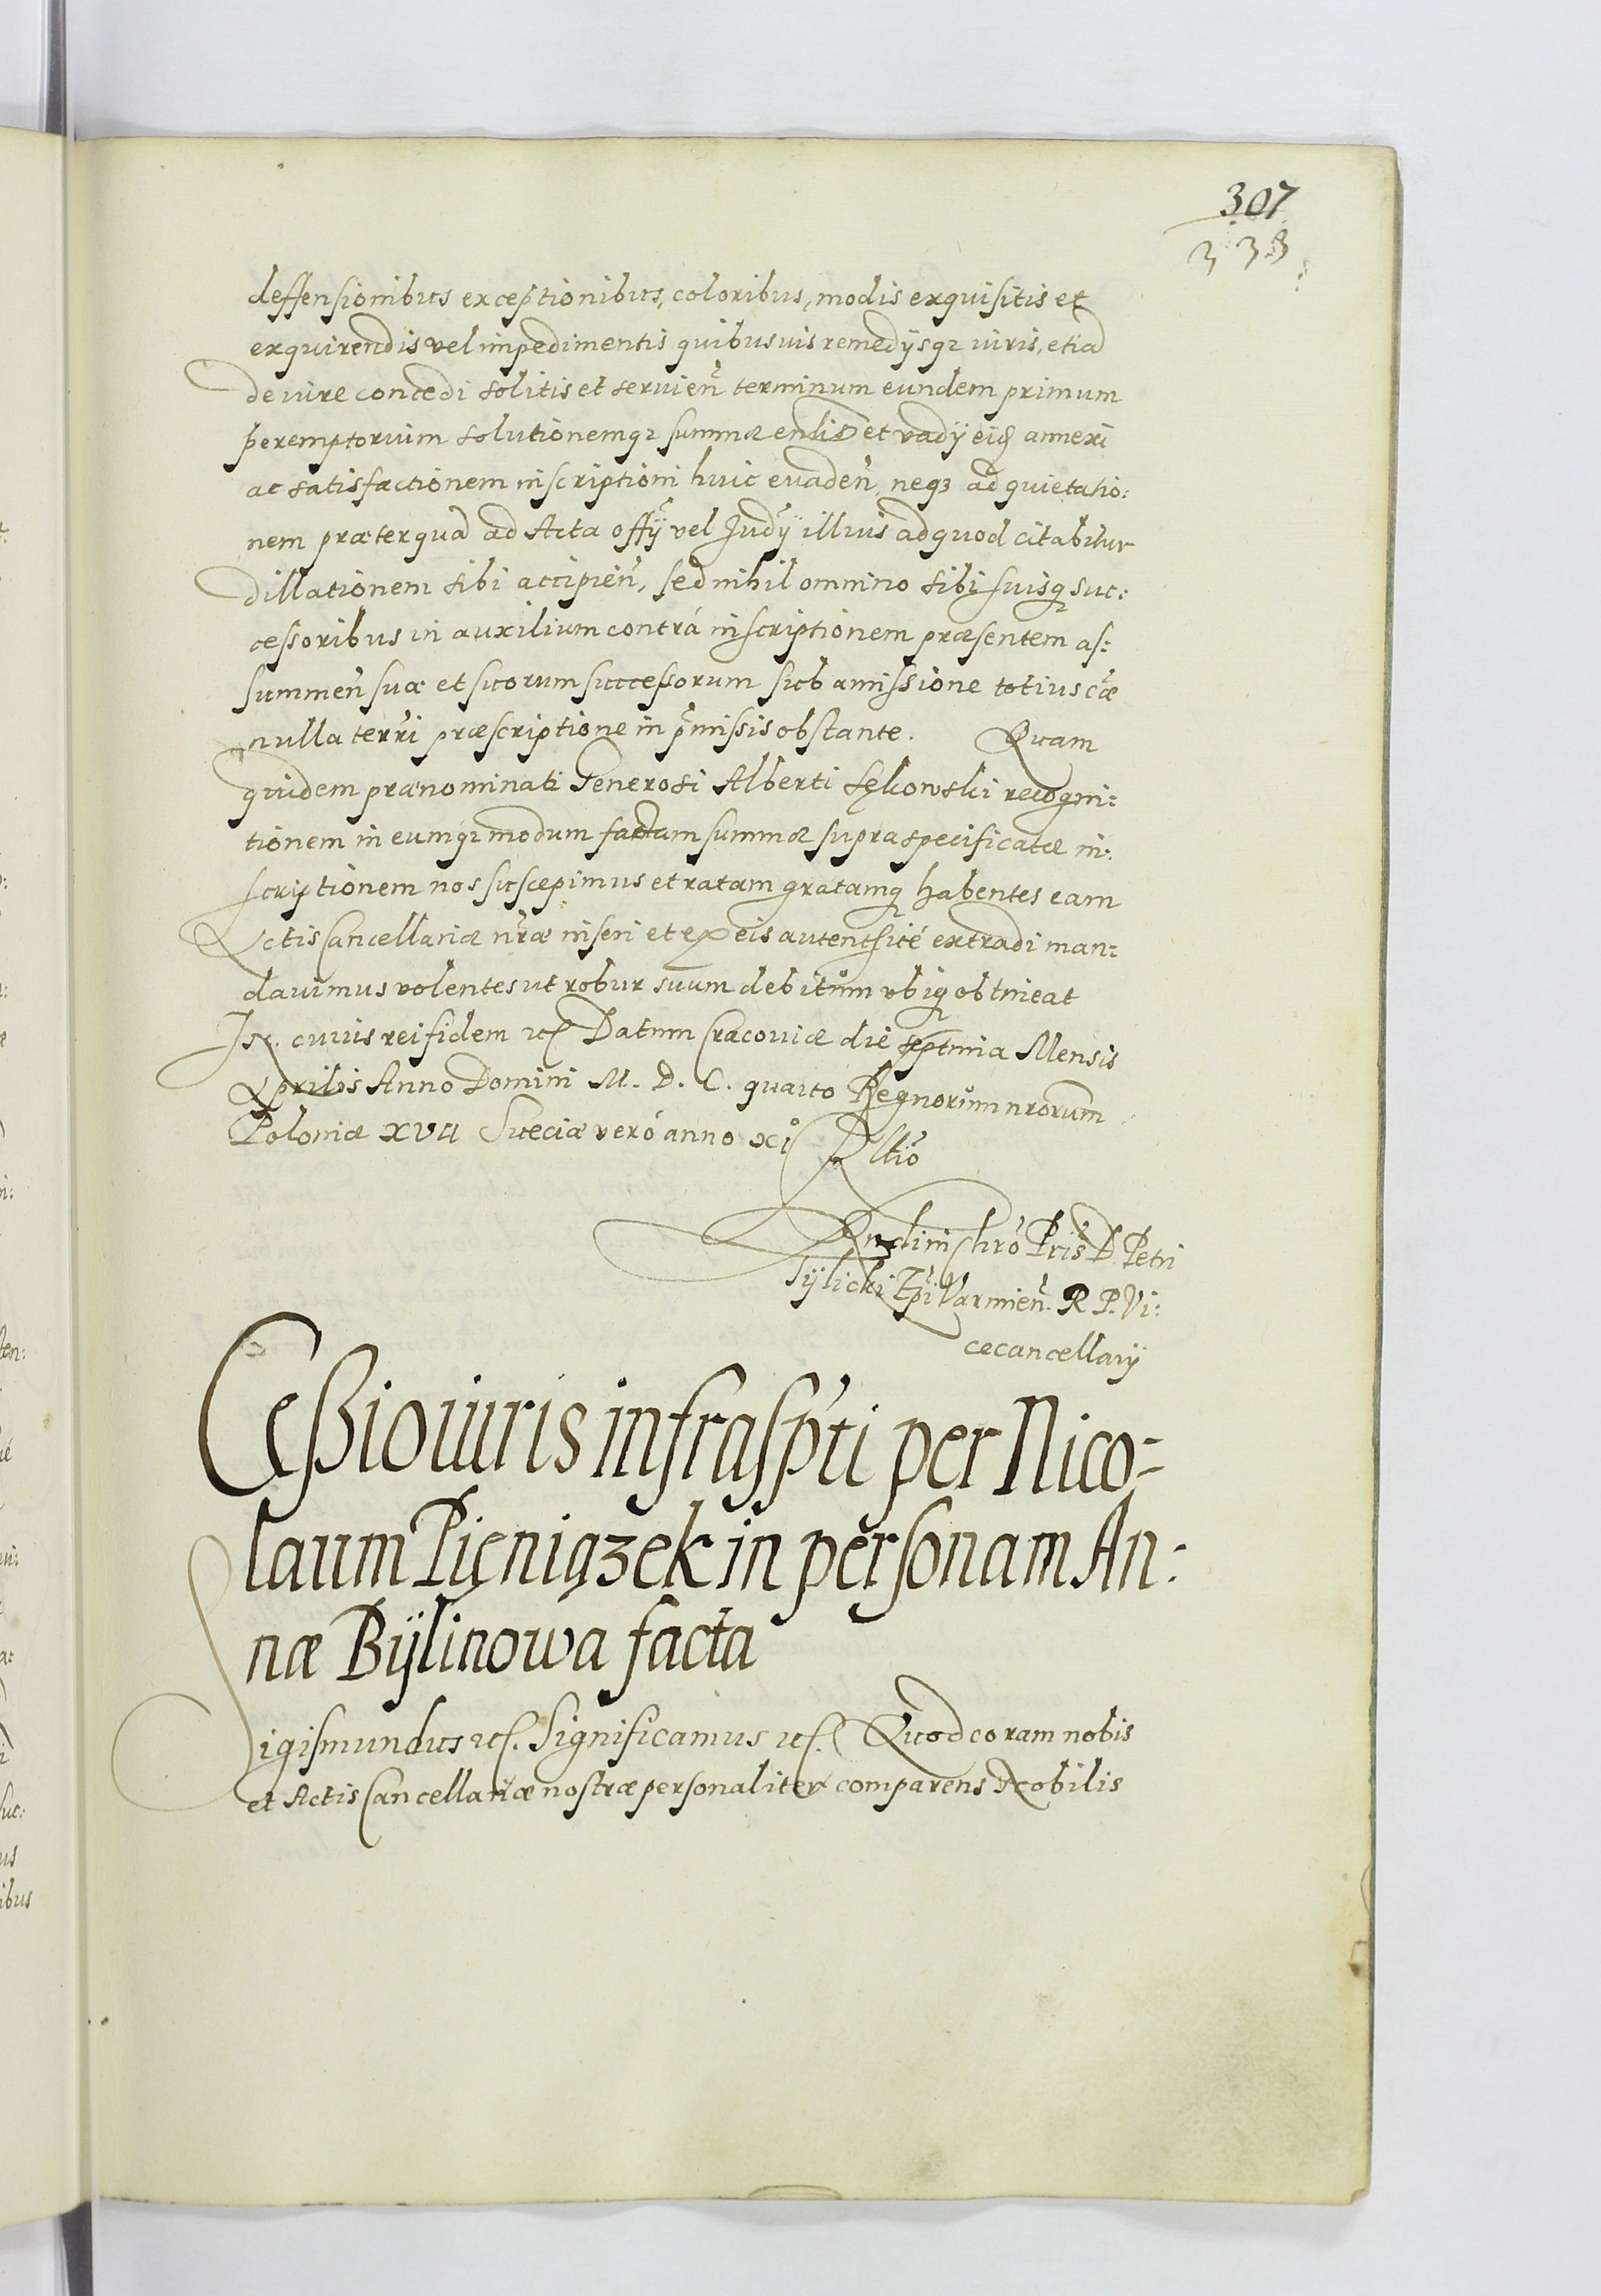 307
338
deffensionibus exceptionibus, coloribus, modis exquisitis et
exquirendis vel impedimentis quibusuis remedijsq3 iuris, etiã
de iure concedi solitis et servieñ terminum eundem primum
peremptorium solutionemq3 summæ et vadij annexi
ac satisfactionem inscriptioni huic evadeñ, neq3 ad quietatio:
nem præterquã ad Acta offÿ vel Judÿ illius ad quod citabitur
dillationem sibi accipieñ, sed nihil omnino sibi suisq suc:
cessoribus in auxilium contrá inscriptionem præsentem as:
summeñ suæ et suorum successorum sub amissione totius cæ
nulla terri præscriptione in pmissis obstante. Quam
quidem prænominati Generosi Alberti Sękowski recogni:
tionem in eumq3 modum factam summæ supra specificatæ in:
scriptionem nos suscepimus et ratam gratamq habentes eam
Actis Cancellariæ nræ inseri et ex eis autentice extradi man:
davimus volentes ut robur suum debitum ubiq obtineat
In cuius rei fidem etc Datum Cracoviæ die septima Mensis
Aprilis Anno Domini M. D. C. quarto Regnorum nrorum
Poloniæ XVII Sueciæ veró anno xi Rltio
Rndi in Chro Pris D. Petri
Tylicki Epi Varmieñ. R. P. Vi:
cecancellarij
Cessio iuris infraspti per Nico-
laum Pieniązek in personam An:
næ Bÿlinowa facta
Sigismundus etc. Significamus etc. Quod coram nobis
et Actis Cancellariæ nostræ personaliter comparens Nobilis